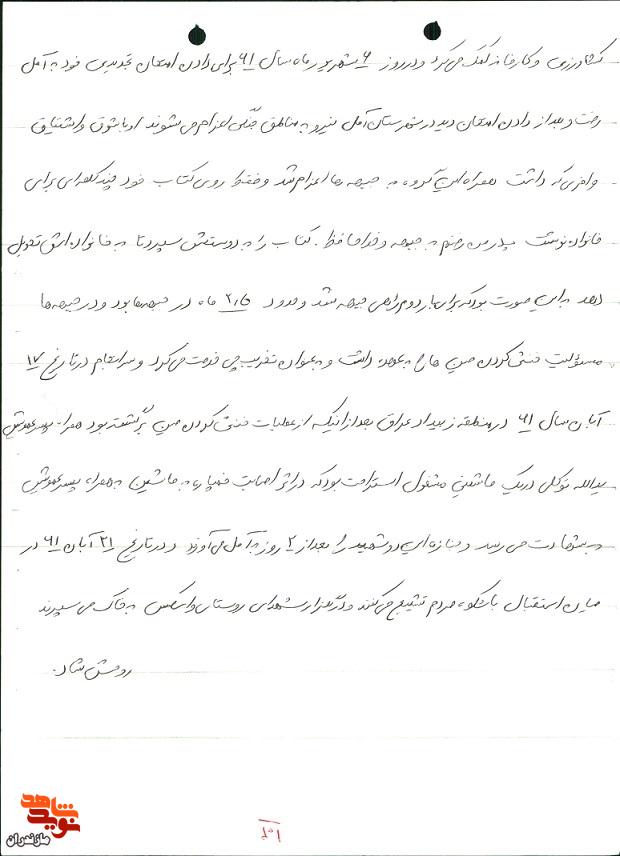 کشاورزی و کارخانه کمک می‌کرد و در روز ۶ شهریور ماه سال ۶۱ برای دادن امتحان تجدیدی خود به آمل
رفت و بعد از دادن امتحان دید در شهرستان آمل نیرو به مناطق جنگی اعزام می شوند او با شوق و اشتیاق
وافری که داشت همراه این گروه به جبهه ها اعزام شد و فقط روی کتاب خود چند کلمه‌ای برای
خانواده نوشت پدر من رفتم به جبهه و خداحافظ. کتاب را به دوستش سپرد تا به خانواده اش تحویل
دهد به این صورت بود که برای بار دوم راهی جبهه شد و حدود ۲٫۵ ماه در جبهه‌ها بود و در جبهه ها
مسؤلیت خنثی کردن مین ها را به عهده داشت و به عنوان تخریب چی خدمت می کرد و سرانجام در تاریخ ۱۷
آبان سال ۶۱ در منطقه زبیدات عراق بعد از اینکه از عملیات خنثی کردن مین برگشته بود همراه پسر عمویش
یدالله توکلی در یک ماشینی مشغول استراحت بود که در اثر اصابت خمپاره به ماشین به همراه پسر عمویش
به شهادت می رسد و جنازه این دو شهید را بعد از ۲ روز به آمل می‌آورند و در تاریخ ۲۱ آبان ۶۱ در
میان استقبال با شکوه مردم تشییع می کنند و در گلزار شهدای روستای واسکس به خاک می سپرند
روحش شاد.
نوید شاهد
مازندران